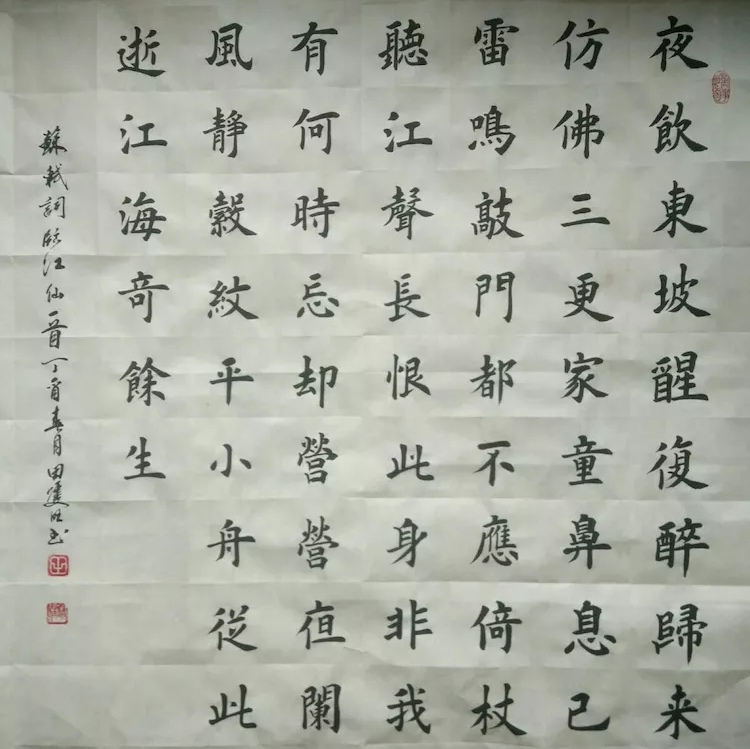 夜飲東坡醒復醉歸来
仿佛三更家童鼻息已
雷鳴敲門都不應倚杖
聽江聲長恨此身非我
有何時忘却營營夜闌
風靜縠紋平小舟從此
逝江海寄餘生
蘇軾詞臨江仙一首丁酉春月田書